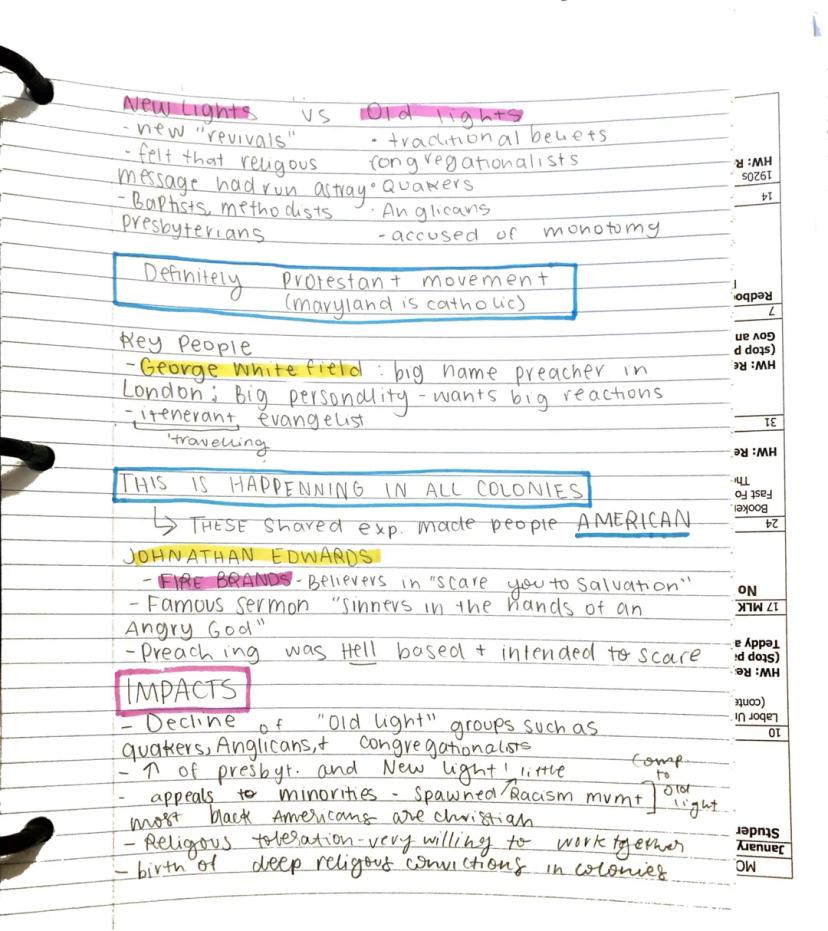 New Lights vs Old lights
- new "revivals" • traditional beliefs
- felt that religous congregationalists
message had run astray • Quakers
- Baptists, methodists • Anglicans
presbyterians - accused of monotomy
Definitely protestant movement
(maryland is catholic)
Key People
- George White field : big name preacher in
London; Big personality - wants big reactions
- itenerant evangelist
travelling
THIS IS HAPPENNING IN ALL COLONIES
↳ THESE shared exp. made people AMERICAN
JOHNATHAN EDWARDS
- FIRE BRANDS - Believers in "scare you to salvation"
- Famous sermon "Sinners in the hands of an
Angry God"
- Preaching was Hell based + intended to scare
IMPACTS
- Decline of "Old light" groups such as
quakers, Anglicans, + congregationalists
- ↑ of presbyt. and New light! little
- appeals to minorities - spawned Racism mvmt
comp
to
old
light
most black Americans are christian
- Religous toleration - very willing to work together
- birth of deep religous convictions in colonies
HW: R
1920s
14
Redbo
7
Gov an
(stop p
HW: Re
31
HW: Re
Thi
Fast Fo
Booklet
24
No
17 MLK
Teddy a
(Stop pa
HW: Re
(conto
Labor Ur
10
Studer
January
MO